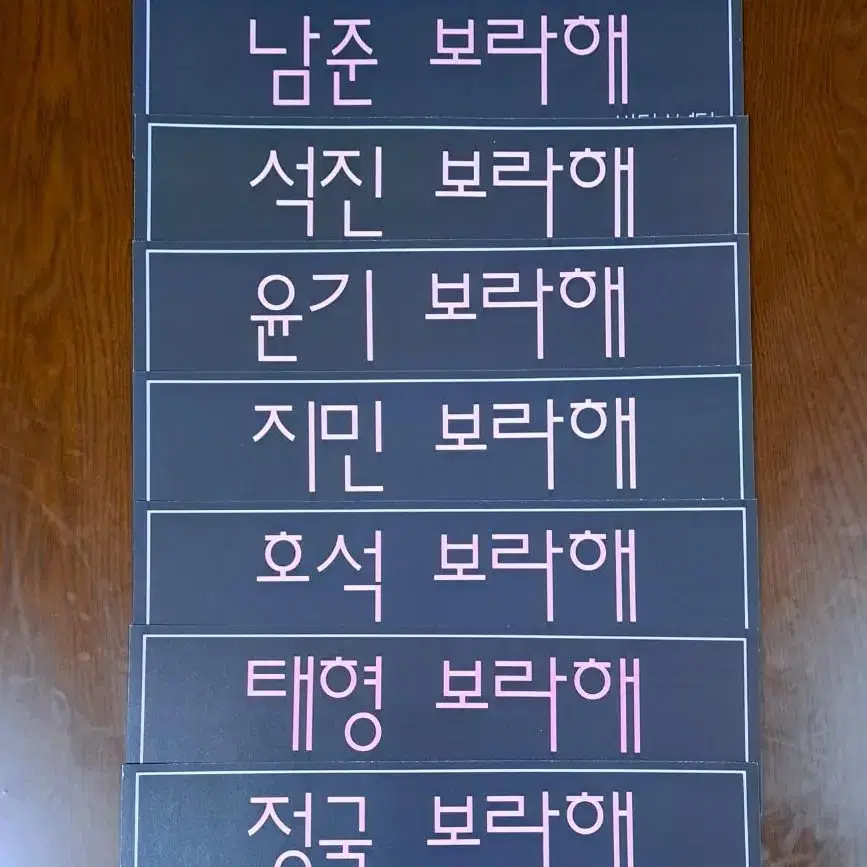 남준 보라해
석진 보라해
윤기 보라해
지민 보라해
호석 보라해
태형 보라해
정국 보라해